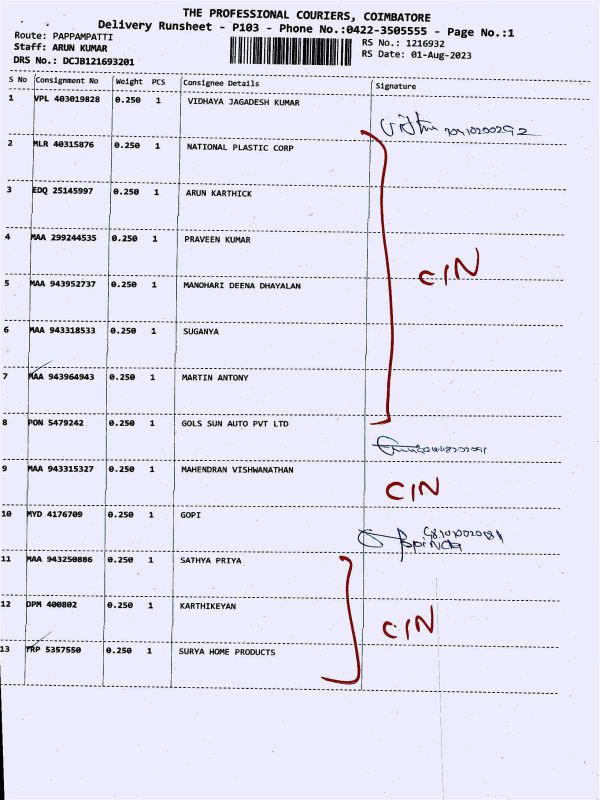 THE PROFESSIONAL COURIERS, COIMBATORE
Delivery Runsheet - P103 - Phone No.:0422-3505555 - Page No.:1
Route: PAPPAMPATTI
Staff: ARUN KUMAR
DRS No.: DCJB121693201
RS No.: 1216932
RS Date: 01-Aug-2023
S No Consignment No Weight PCS Consignee Details Signature
1 VPL 403019828 0.250 1 VIDHAYA JAGADESH KUMAR
2 MLR 40315876 0.250 1 NATIONAL PLASTIC CORP
3 EDQ 25145997 0.250 1 ARUN KARTHICK
4 MAA 299244535 0.250 1 PRAVEEN KUMAR
CIN
5 MAA 943952737 0.250 1 MANOHARI DEENA DHAYALAN
6 MAA 943318533 0.250 1 SUGANYA
7 MAA 943964943 0.250 1 MARTIN ANTONY
8 PON 5479242 0.250 1 GOLS SUN AUTO PVT LTD
9 MAA 943315327 0.250 1 MAHENDRAN VISHWANATHAN
CIN
10 MYD 4176709 0.250 1 GOPI
11 MAA 943250886 0.250 1 SATHYA PRIYA
12 DPM 400802 0.250 1 KARTHIKEYAN
CIN
13 TRP 5357550 0.250 1 SURYA HOME PRODUCTS